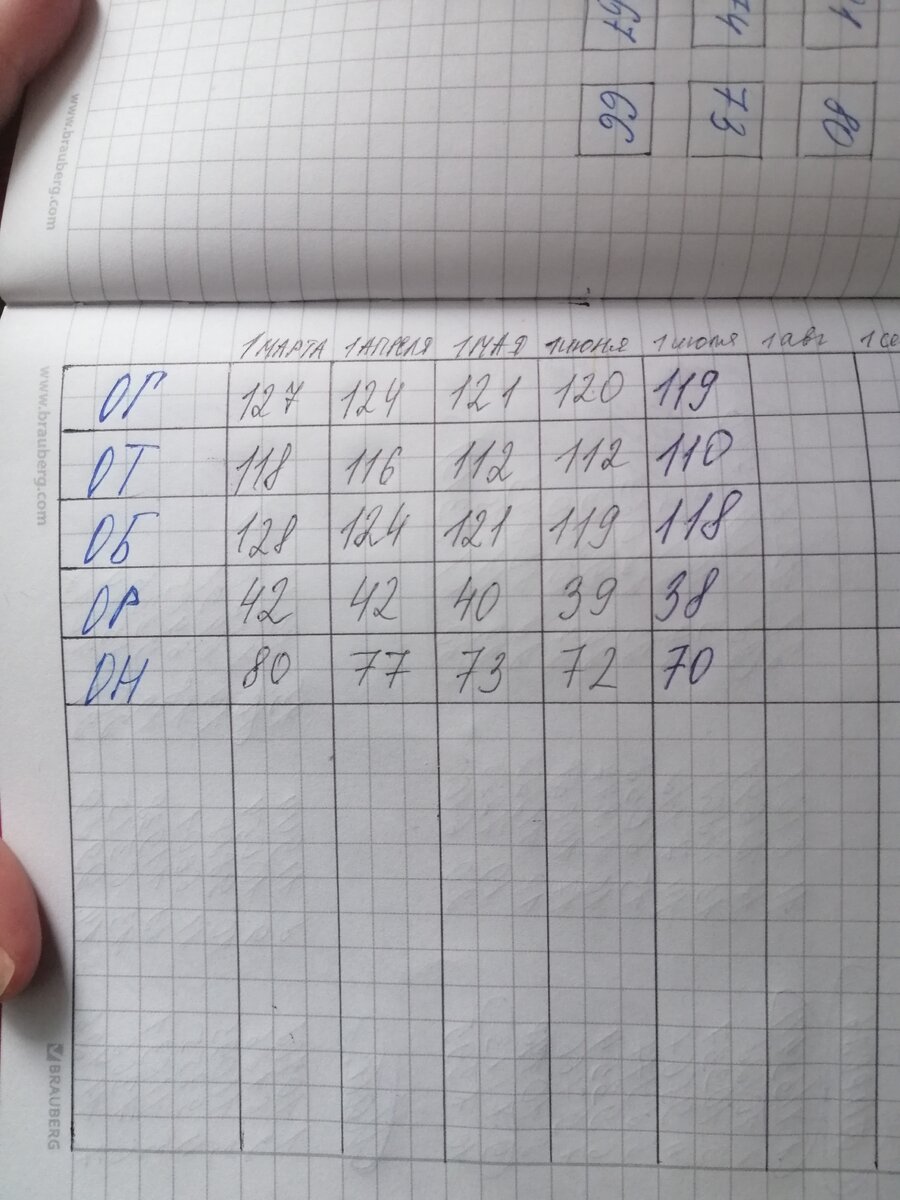 www.brauberg.com
67 74
66 73 80
1 МАРТА 1 АПРЕЛЯ 1 МАЯ 1 июня 1 июля 1 авг 1 се
ОГ 127 124 121 120 119
ОТ 118 116 112 112 110
ОБ 128 124 121 119 118
ОР 42 42 40 39 38
ОН 80 77 73 72 70
www.brauberg.com
BRAUBERG